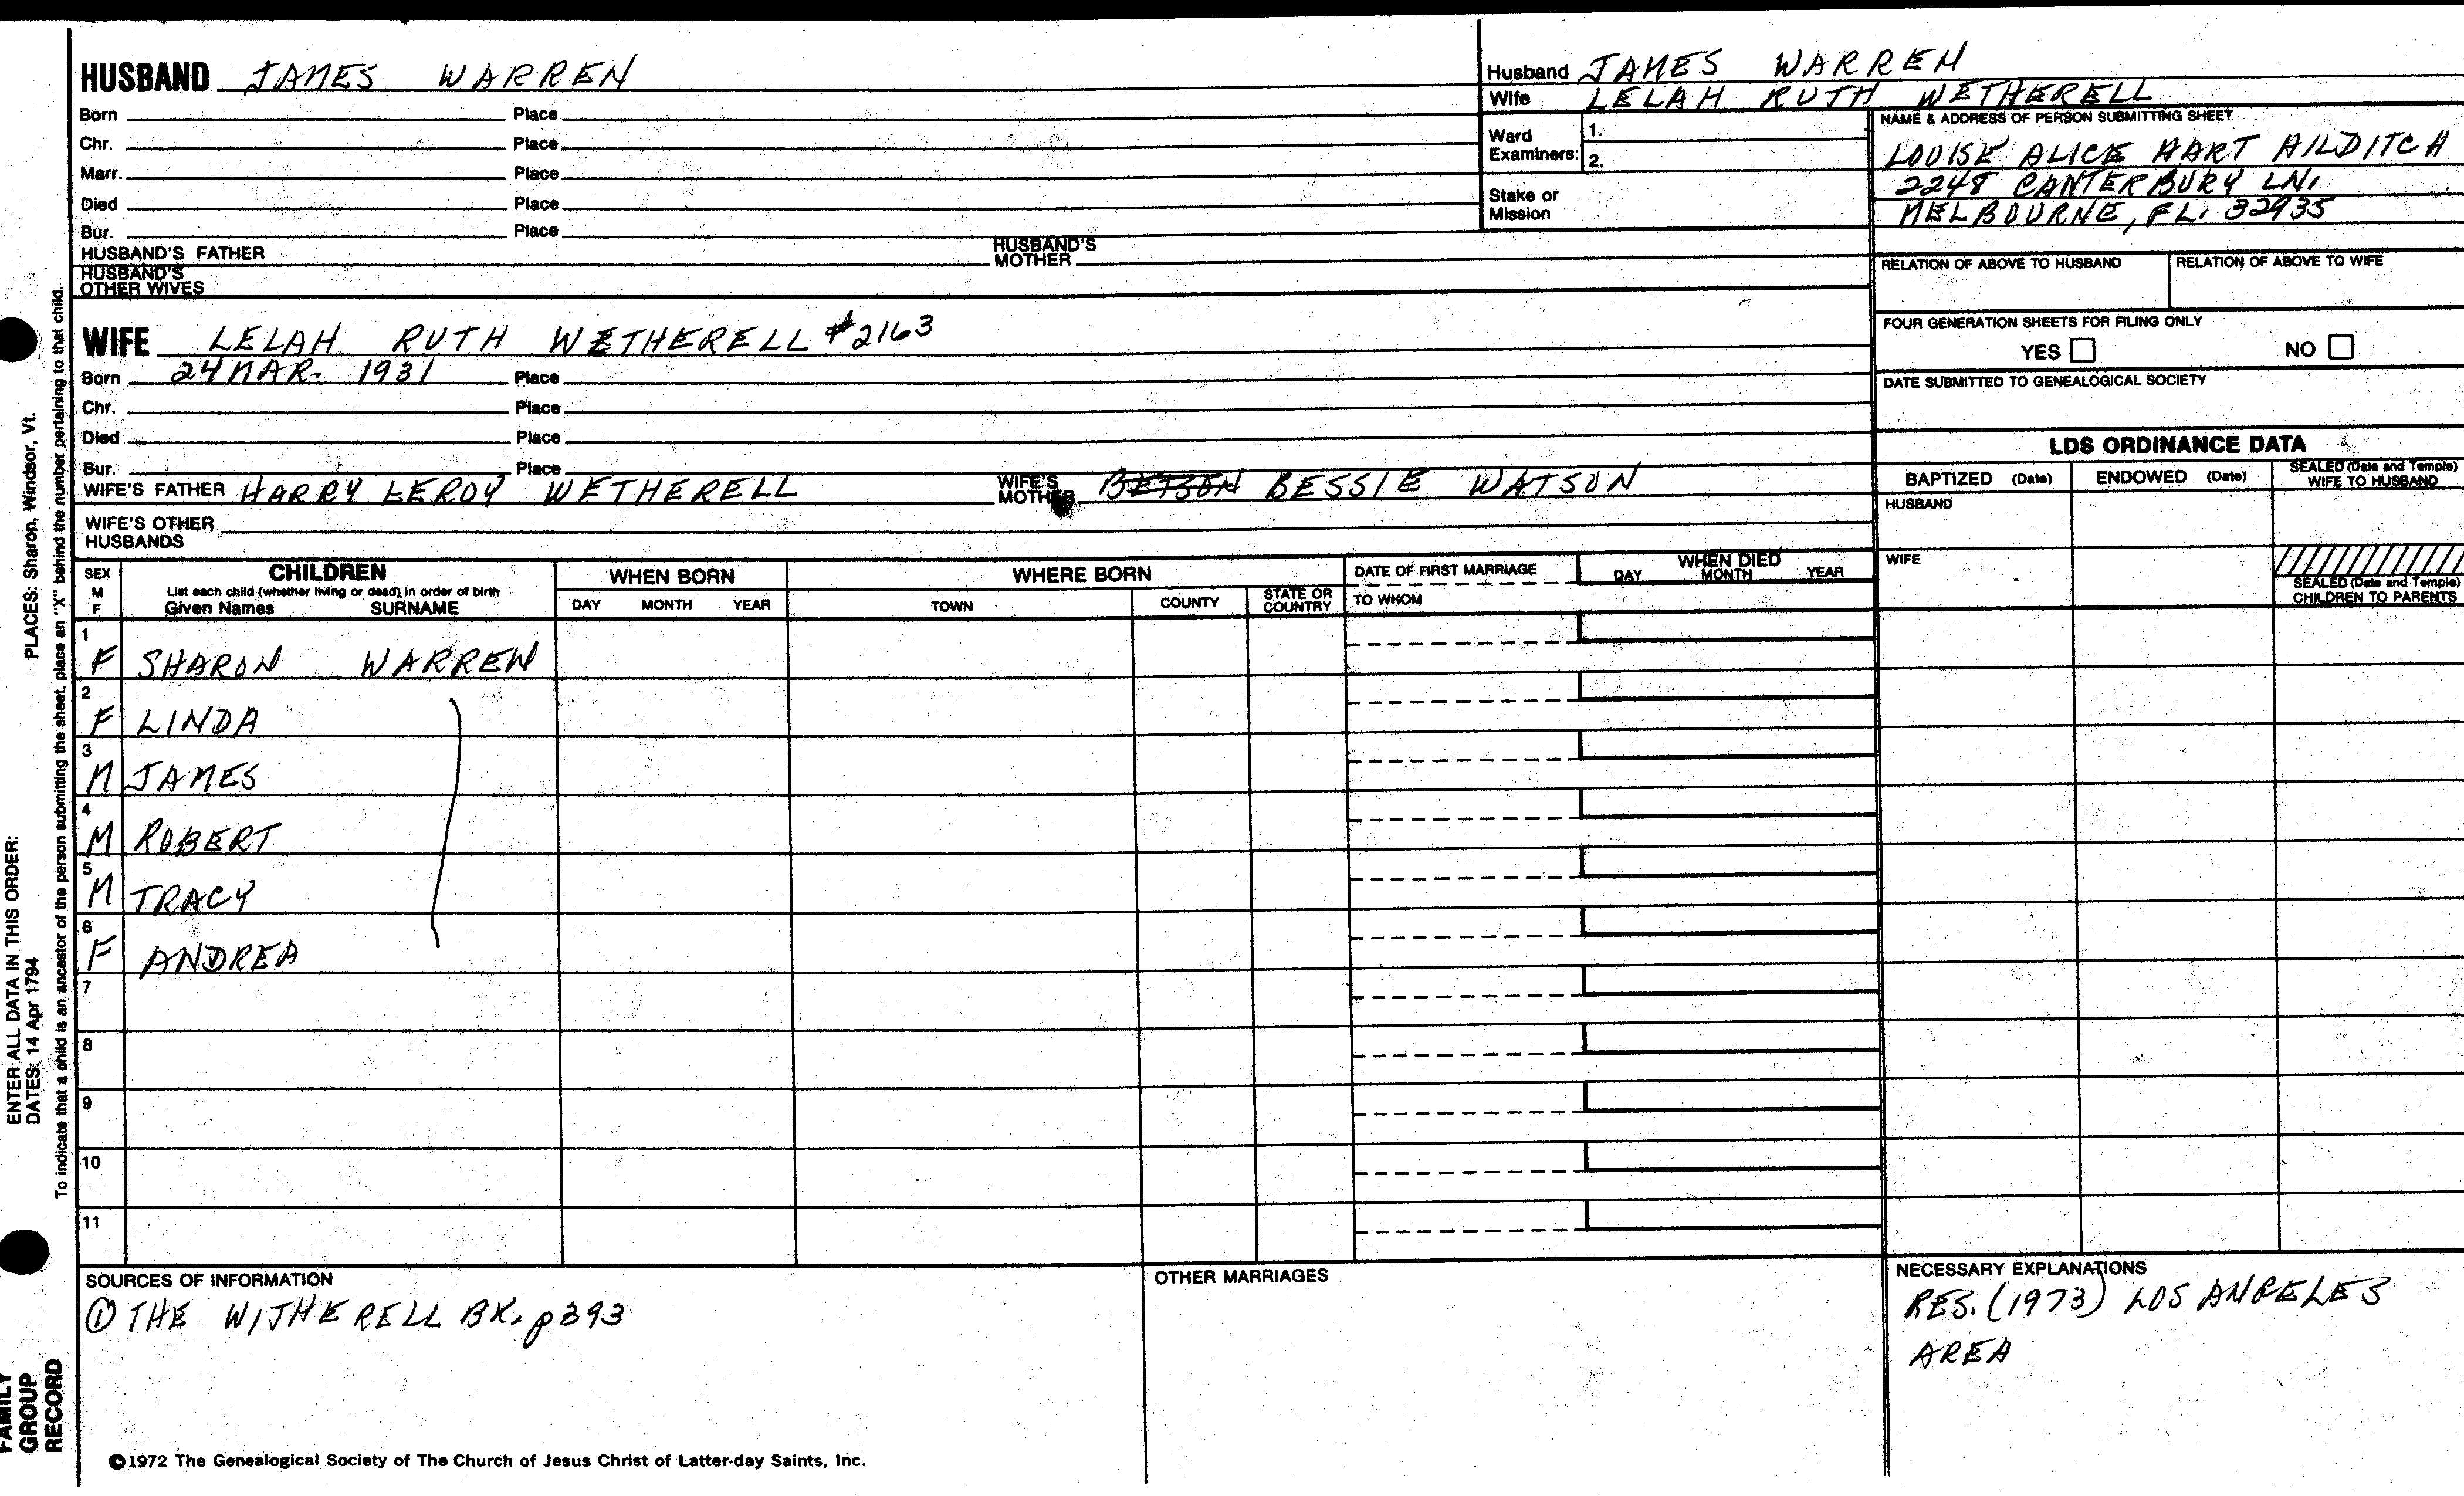 HUSBAND JAMES WARREN
Born Place
Chr. Place
Marr. Place
Died Place
Bur. Place
HUSBAND'S FATHER HUSBAND'S MOTHER
HUSBAND'S OTHER WIVES
Husband JAMES WARREN
Wife LELAH RUTH WETHERELL
Ward Examiners: 1.
2.
Stake or Mission
NAME & ADDRESS OF PERSON SUBMITTING SHEET
LOUISE ALICE HART HILDITCH
2248 CANTERBURY LN.
MELBOURNE, FL. 32935
RELATION OF ABOVE TO HUSBAND RELATION OF ABOVE TO WIFE
FOUR GENERATION SHEETS FOR FILING ONLY
YES NO
DATE SUBMITTED TO GENEALOGICAL SOCIETY
WIFE LELAH RUTH WETHERELL #2163
Born 24 MAR. 1931 Place
Chr. Place
Died Place
Bur. Place
WIFE'S FATHER HARRY LEROY WETHERELL WIFE'S MOTHER BETSON BESSIE WATSON
WIFE'S OTHER HUSBANDS
LDS ORDINANCE DATA
BAPTIZED (Date) ENDOWED (Date) SEALED (Date and Temple) WIFE TO HUSBAND
HUSBAND
WIFE
SEALED (Date and Temple) CHILDREN TO PARENTS
SEX M F
CHILDREN
List each child (whether living or dead) in order of birth
Given Names SURNAME
WHEN BORN
DAY MONTH YEAR
WHERE BORN
TOWN COUNTY STATE OR COUNTRY
DATE OF FIRST MARRIAGE
TO WHOM
WHEN DIED
DAY MONTH YEAR
1 F SHARON WARREN
2 F LINDA
3 M JAMES
4 M ROBERT
5 M TRACY
6 F ANDREA
7
8
9
10
11
SOURCES OF INFORMATION
① THE WITHERELL BK. p393
OTHER MARRIAGES
NECESSARY EXPLANATIONS
RES. (1973) LOS ANGELES
AREA
©1972 The Genealogical Society of The Church of Jesus Christ of Latter-day Saints, Inc.
FAMILY
GROUP
RECORD
ENTER ALL DATA IN THIS ORDER:
DATES: 14 Apr 1794 PLACES: Sharon, Windsor, Vt.
To indicate that a child is an ancestor of the person submitting the sheet, place an "X" behind the number pertaining to that child.